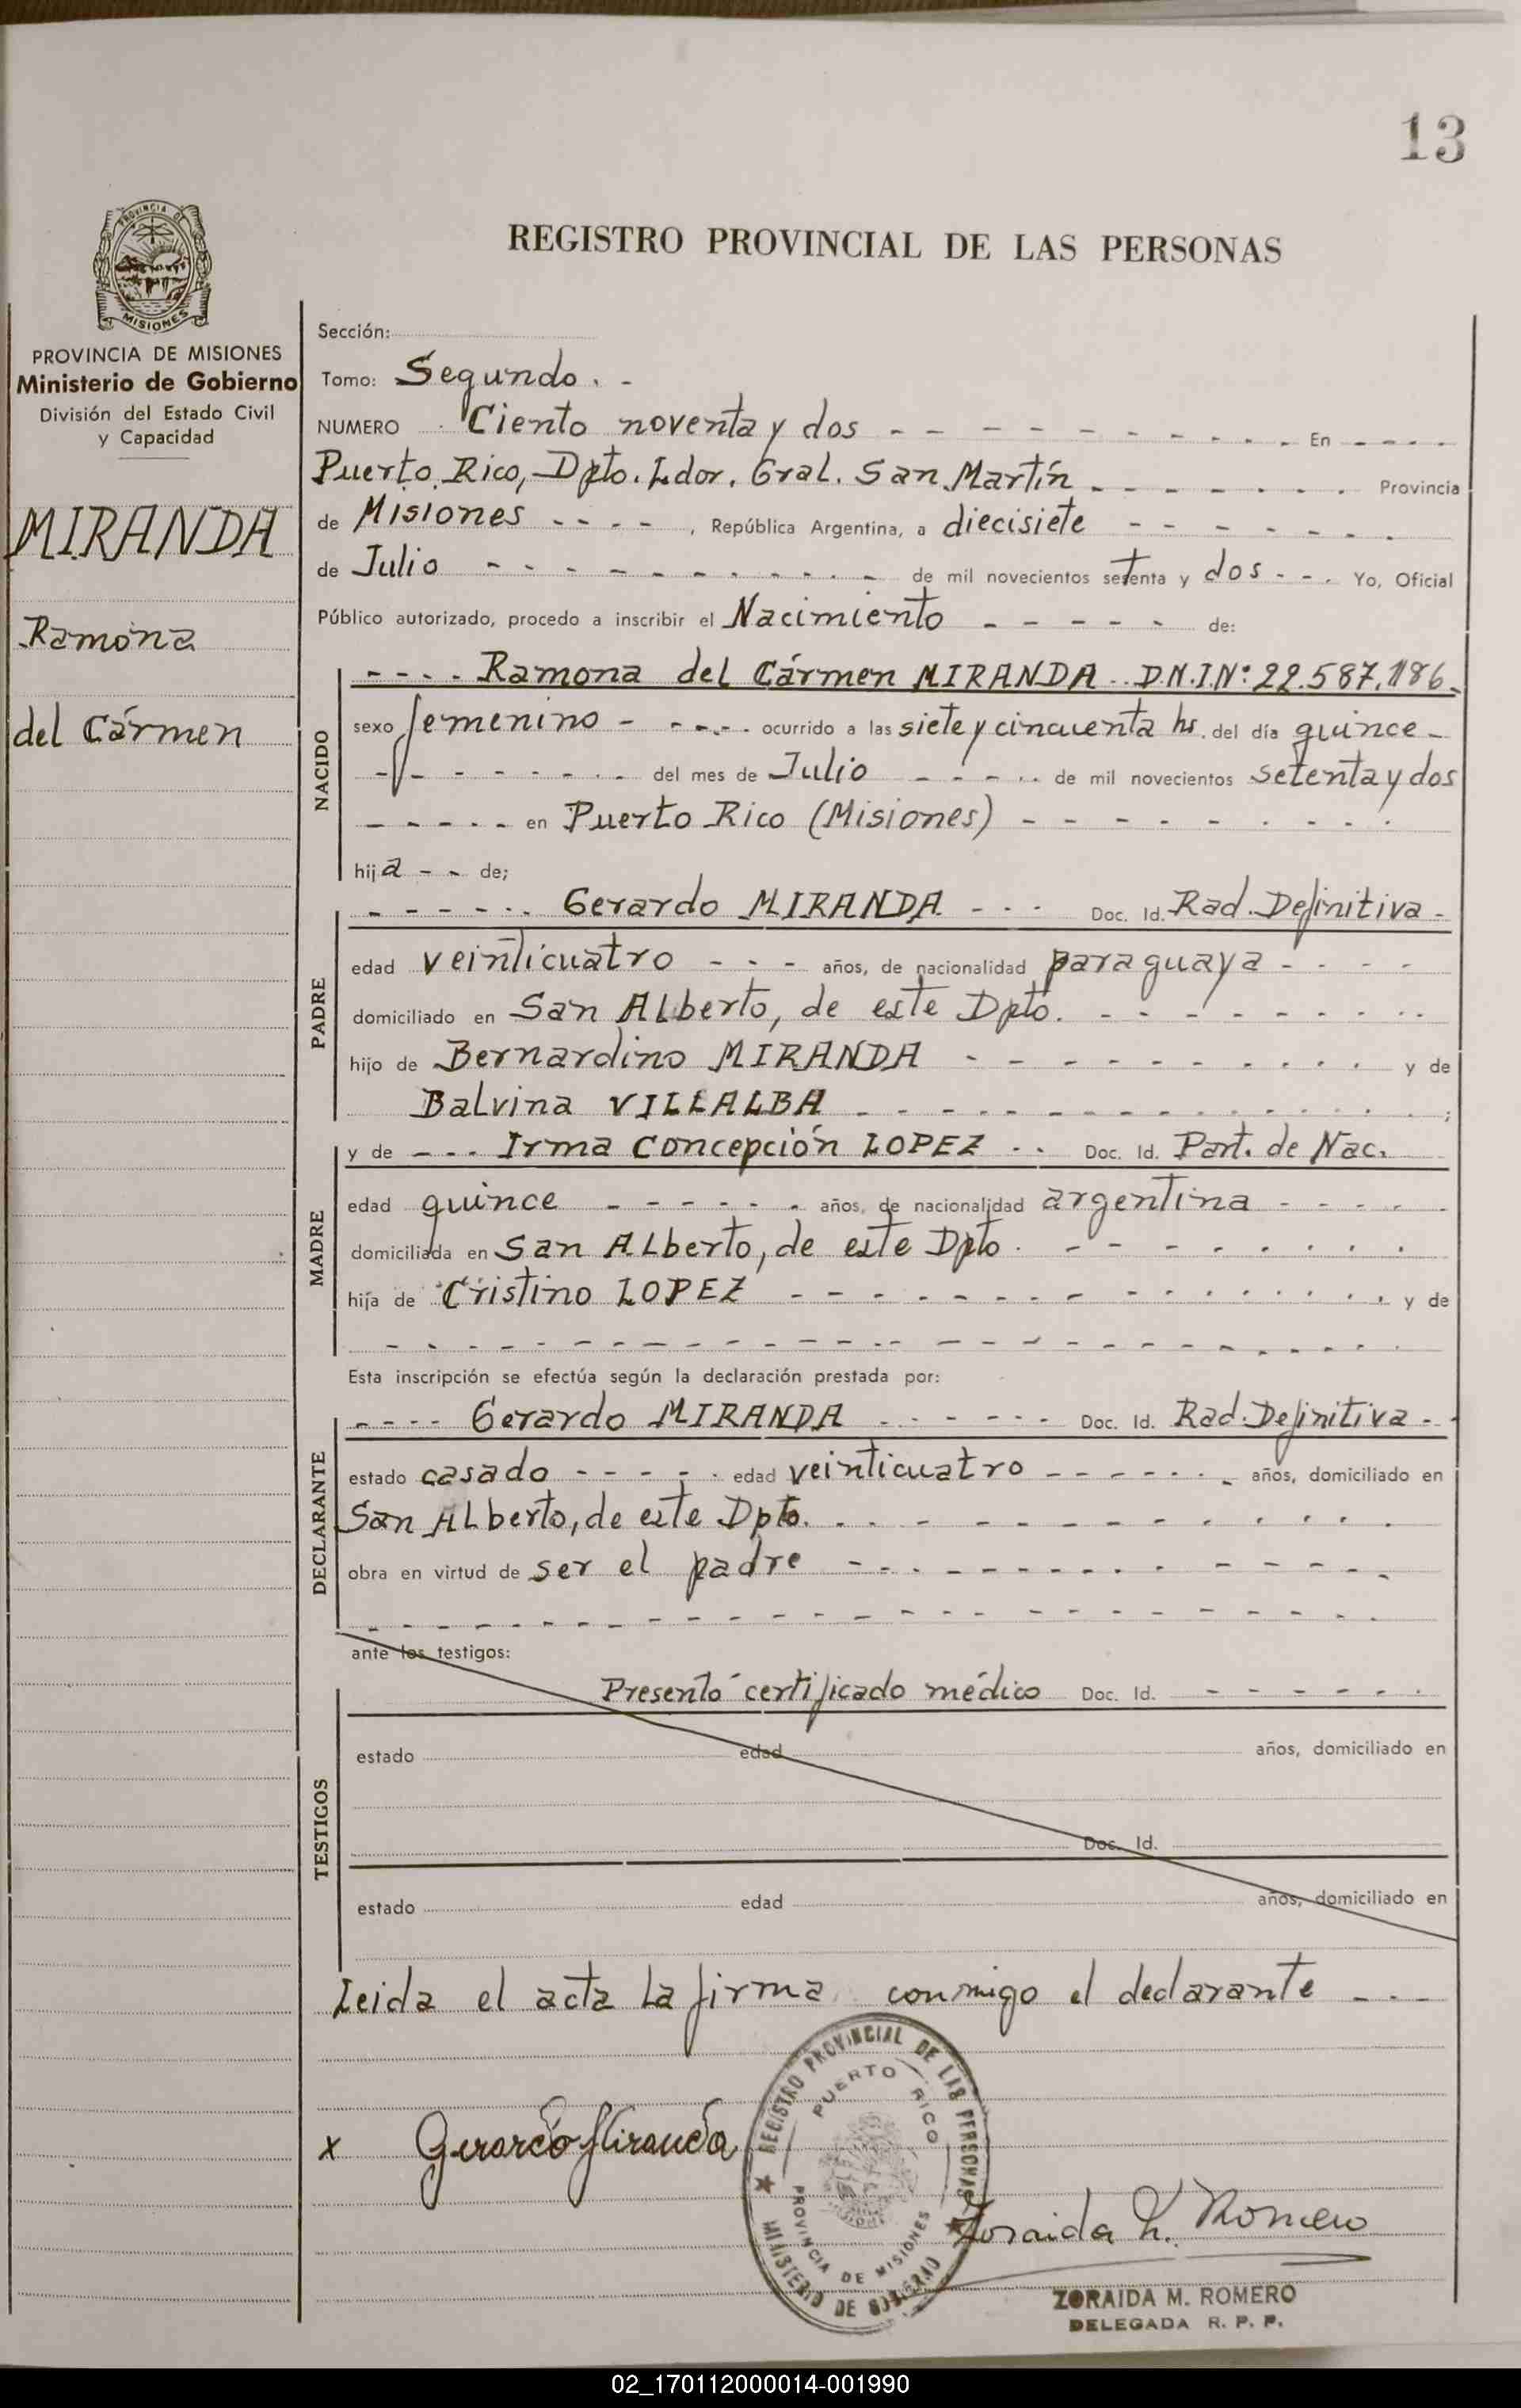 13
REGISTRO PROVINCIAL DE LAS PERSONAS
PROVINCIA DE
MISIONES
PROVINCIA DE MISIONES
Ministerio de Gobierno
División del Estado Civil
y Capacidad
MIRANDA
Ramona
del Cármen
Sección:
Tomo: Segundo. -
NUMERO Ciento noventa y dos - - - - - - - - - En - - - -
Puerto Rico, Dpto. Ldor. Gral. San Martín - - - - - - Provincia
de Misiones - - - - , República Argentina, a diecisiete - - - - - -
de Julio - - - - - - - - - - de mil novecientos setenta y dos - - - Yo, Oficial
Público autorizado, procedo a inscribir el Nacimiento - - - - - de:
NACIDO
- - - - Ramona del Cármen MIRANDA - - D.N.I.Nº: 22.587.186.
sexo femenino - - - - - ocurrido a las siete y cincuenta hs. del día quince -
- - - - - - - - del mes de Julio - - - - - de mil novecientos setenta y dos
- - - - - en Puerto Rico (Misiones) - - - - - - - - -
hija - - de;
PADRE
- - - - - - Gerardo MIRANDA - - - Doc. Id. Rad. Definitiva -
edad veinticuatro - - - años, de nacionalidad paraguaya - - - -
domiciliado en San Alberto, de este Dpto. - - - - - - - - -
hijo de Bernardino MIRANDA - - - - - - - - - - y de
Balvina VILLALBA - - - - - - - - - - - - - - ;
MADRE
y de - - - Irma Concepción LOPEZ - - Doc. Id. Part. de Nac.
edad quince - - - - - - años, de nacionalidad argentina - - - - -
domiciliada en San Alberto, de este Dpto. - - - - - - - - -
hija de Cristino LOPEZ - - - - - - - - - - - - - - y de
- - - - - - - - - - - - - - - - - - - - - -
Esta inscripción se efectúa según la declaración prestada por:
DECLARANTE
- - - - Gerardo MIRANDA - - - - - - Doc. Id. Rad. Definitiva - -
estado casado - - - - - edad veinticuatro - - - - - - - años, domiciliado en
San Alberto, de este Dpto. - - - - - - - - - - - - -
obra en virtud de ser el padre - - - - - - - - - - - - - -
- - - - - - - - - - - - - - - - - - - -
ante los testigos:
TESTIGOS
Presentó certificado médico Doc. Id. - - - - - -
estado edad años, domiciliado en
Doc. Id.
estado edad años, domiciliado en
Leida el acta la firma conmigo el declarante - - -
REGISTRO PROVINCIAL DE LAS PERSONAS
PUERTO RICO
PROVINCIA DE MISIONES
MINISTERIO DE GOBIERNO
x Gerardo Miranda
Zoraida M. Romero
ZORAIDA M. ROMERO
DELEGADA R. P. P.
02_170112000014-001990